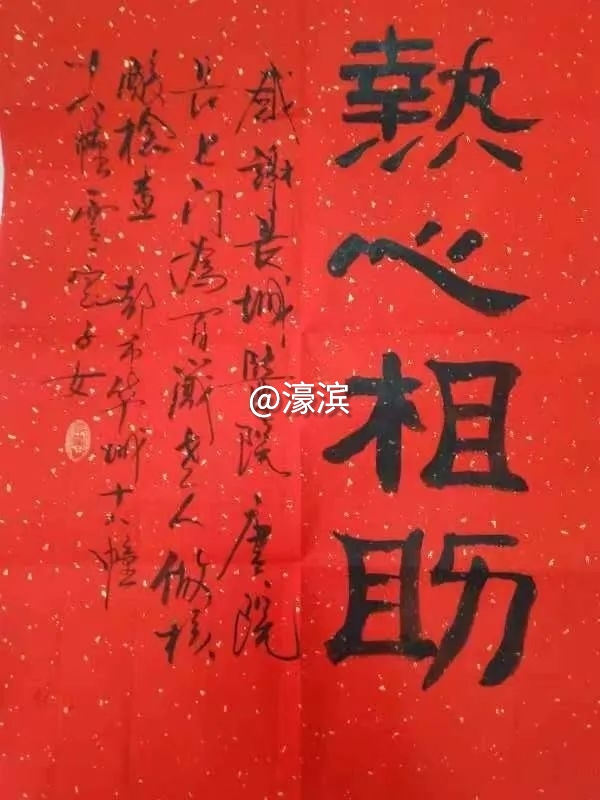 熱心相助
感謝長城醫院唐院
長上门為百歲老人做核
酸檢查 都市华城十六幢
子女
@濠滨